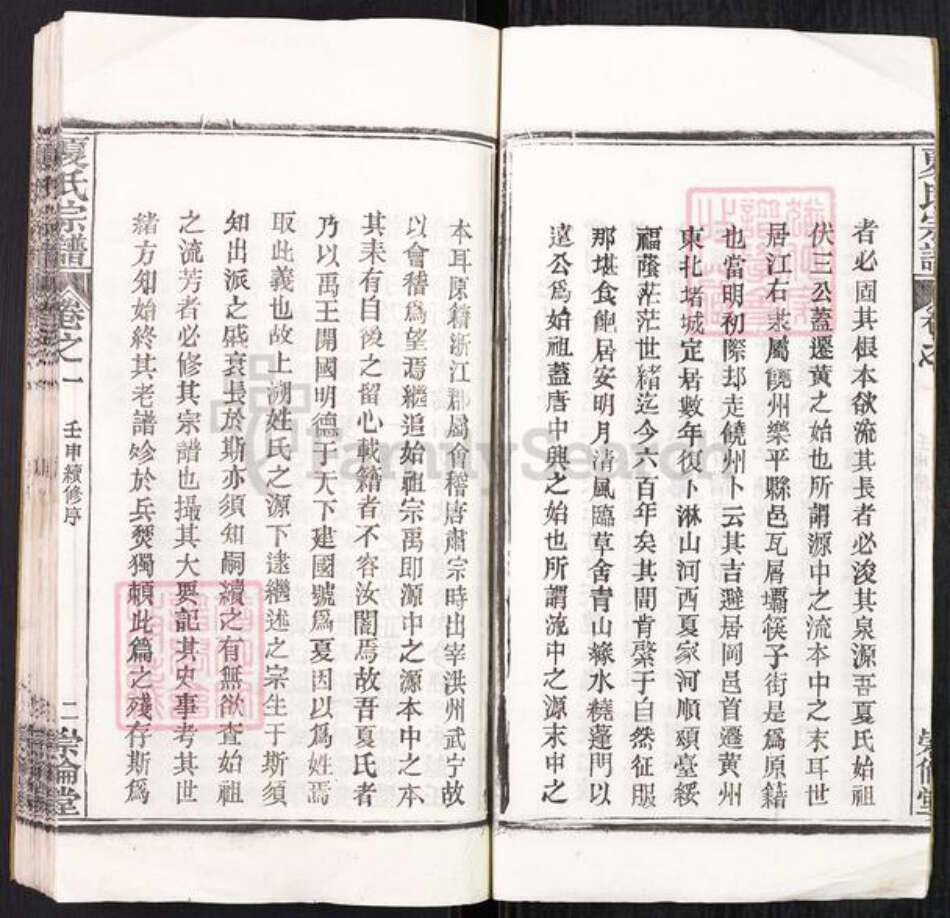 者必固其根本欲流其長者必浚其泉源吾夏氏始祖
伏三公蓋遷黄之始也所謂源中之流本中之末耳世
居江右隶屬饒州樂平縣邑瓦屑壩筷子街是爲原籍
也當明初際却走饒州卜云其吉避居岡邑首遷黄州
東北堵城定居數年復卜淋山河西夏家河順頭臺綏
福蔭茫茫世緒迄今六百年矣其間肯綮于自然征服
那堪食飽居安明月清風臨草舍青山綠水繞蓬門以
遠公爲始祖蓋唐中興之始也所謂流中之源末中之
本耳原籍浙江郡屬會稽唐肅宗時出宰洪州武宁故
以會稽爲望焉繼追始祖宗禹即源中之源本中之本
其来有自後之留心載籍者不容汝闇焉故吾夏氏者
乃以禹王開國明德于天下建國號爲夏因以爲姓焉
取此義也故上溯姓氏之源下逮繼述之宗生于斯須
知出派之盛衰長於斯亦須知嗣續之有無欲查始祖
之流芳者必修其宗譜也撮其大要記其史事考其世
緒方知始終其老譜殄於兵燹獨頼此篇之殘存斯爲
夏氏宗譜
卷之一
壬申續修序
二
崇倫堂
FamilySearch